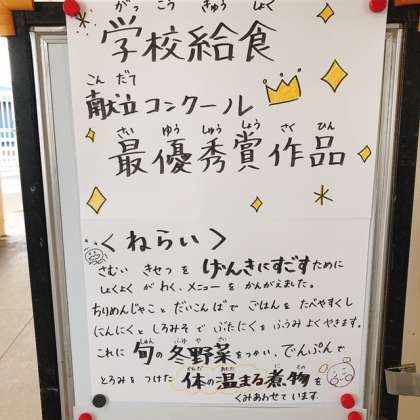 がっ こう きゅう しょく
学校給食
こん だて
献立コンクール
さい ゆう しゅう しょう さく ひん
最優秀賞作品
＜ねらい＞
さむい きせつを げんきにすごすために
しょくよくがわく、メニューを かんがえました。
ちりめんじゃこと だいこんばで ごはんを たべやすくし
にんにくと しろみそで ぶたにくを ふうみよくやきます。
しゅん ふゆ や さい
これに 旬の冬野菜をつかい、でんぷんで
からだ あたた に もの
とろみをつけた 体の温まる煮物を
くみあわせています。